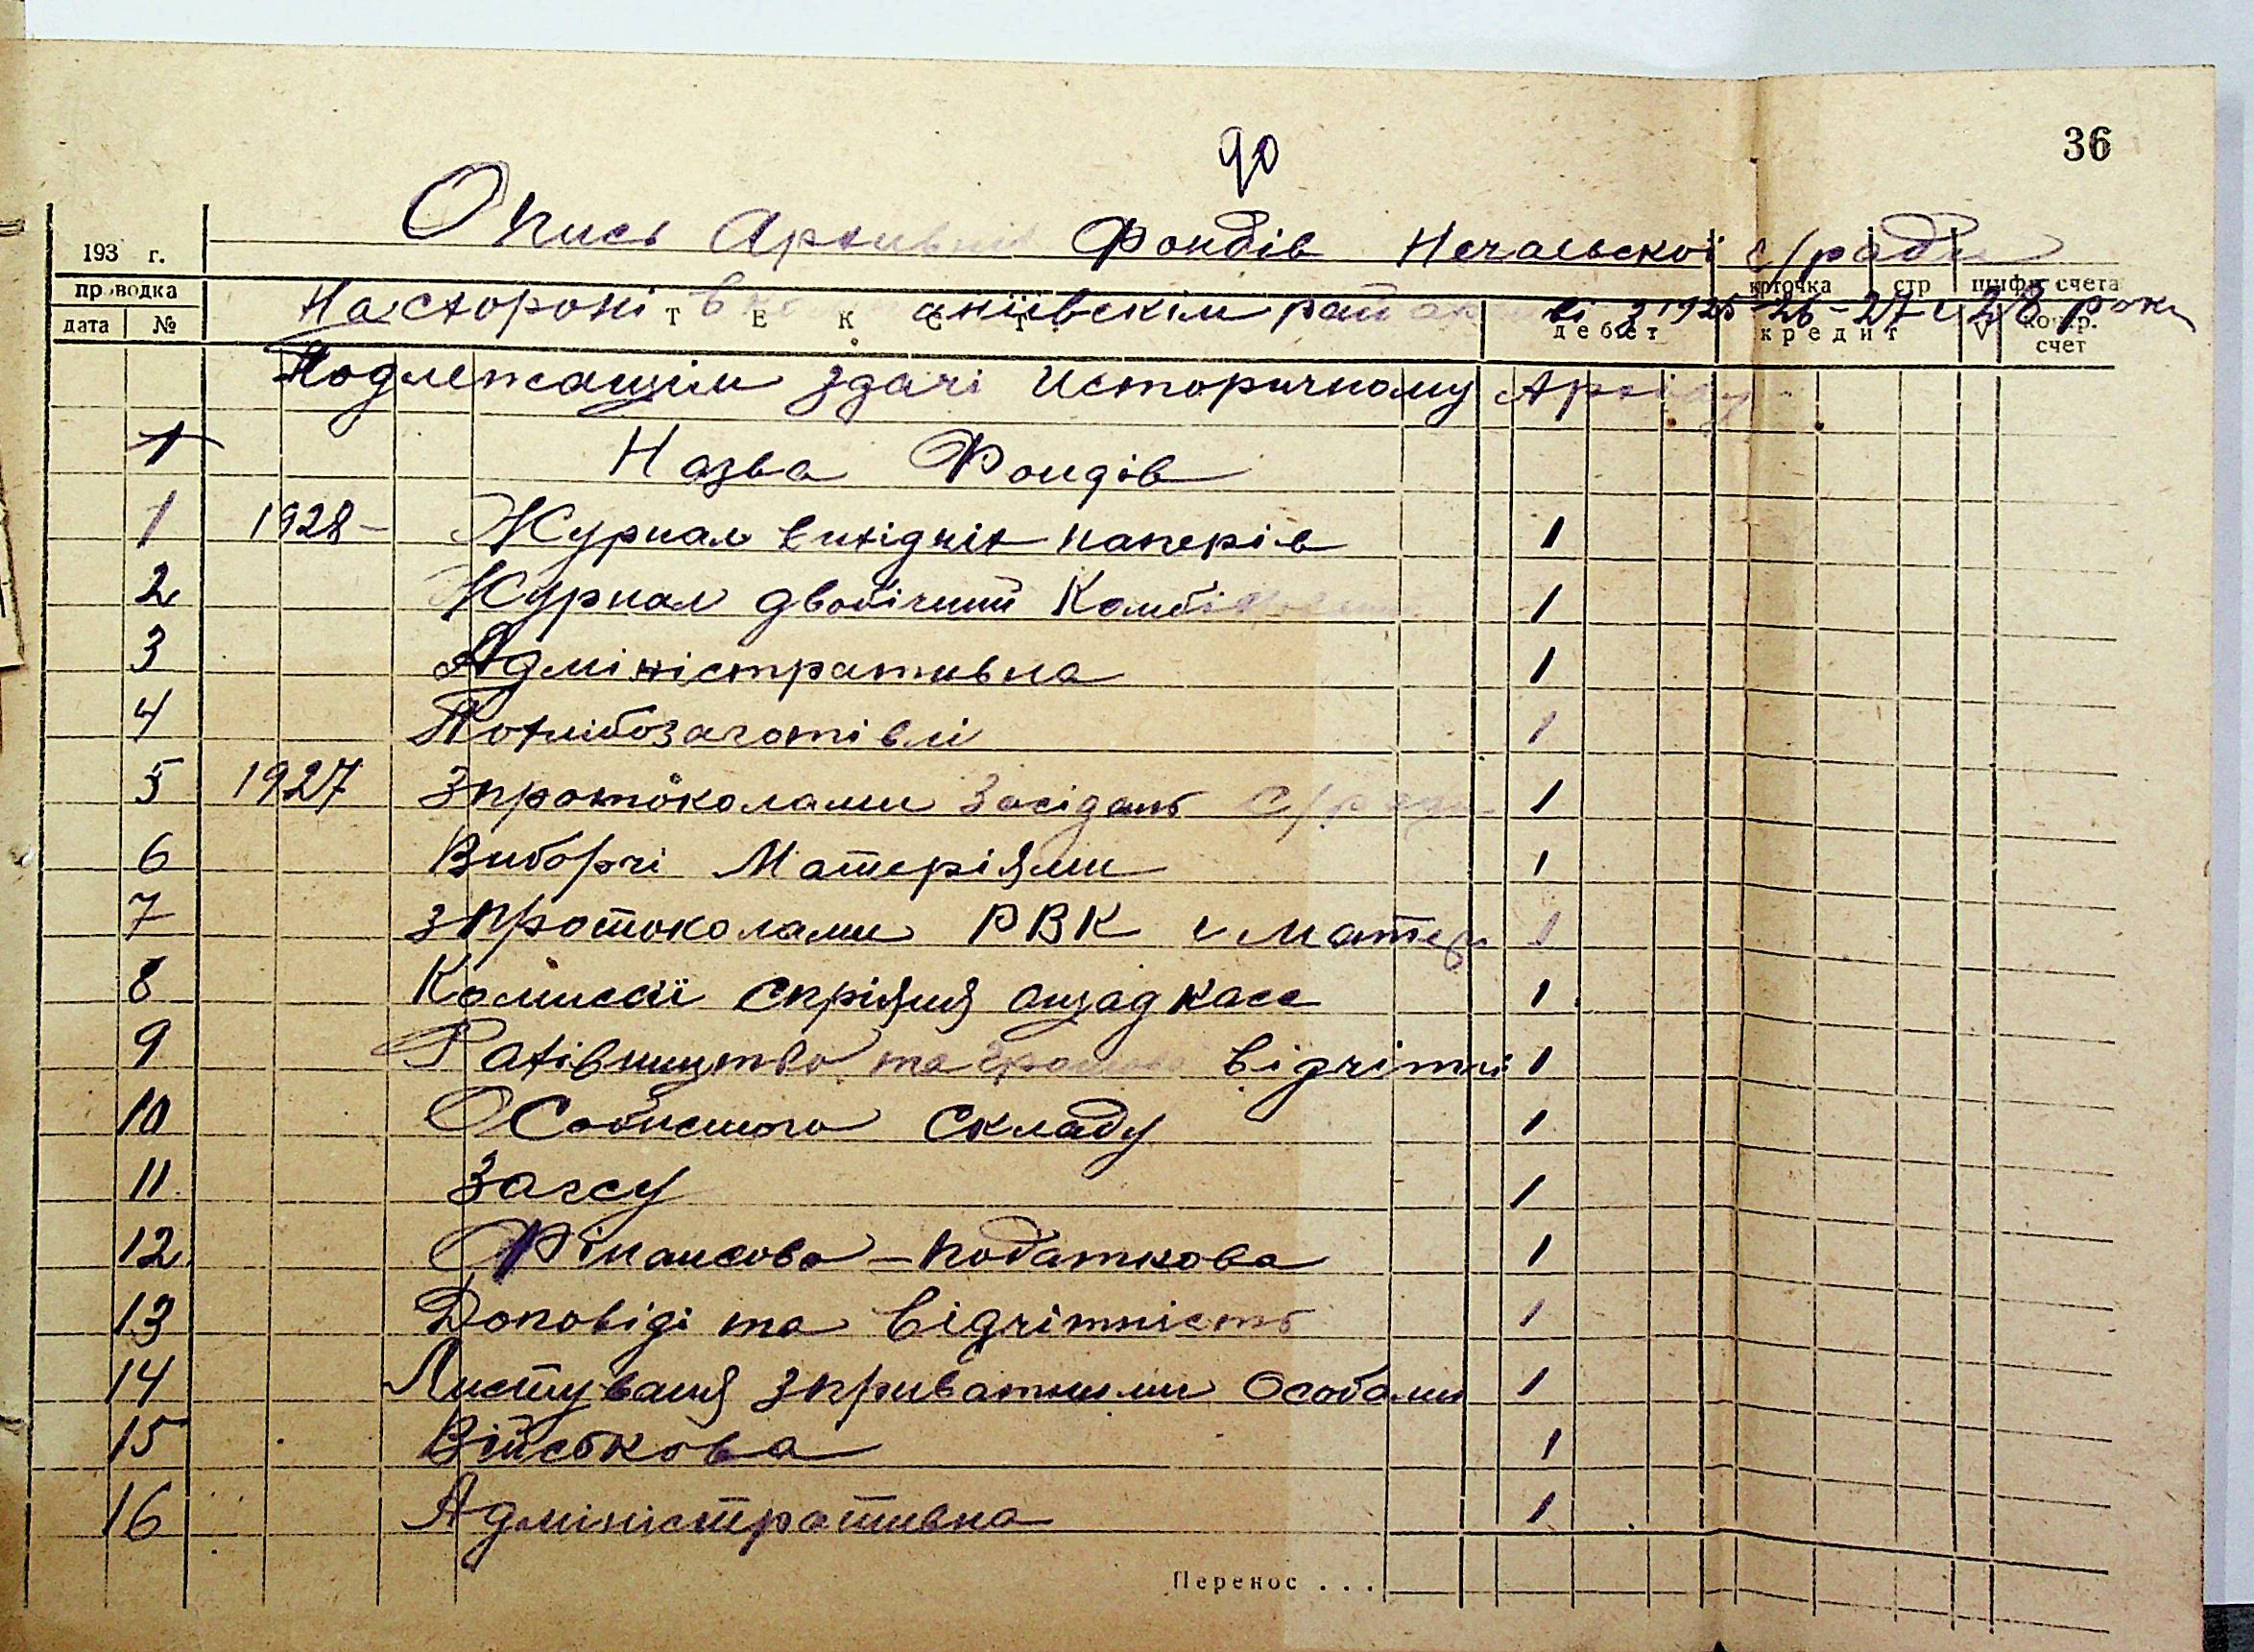 90
36
Опись Архивніх Фондів Нечаевскої с/ради
193 г.
проводка
карточка стр шифр счета
На стороні районі з 1925-26-27 и 28 роки
дата № Т Е К С Т дебет кредит V корр. счет
Подлежащім здачі Историчному Архіву
Назва Фондів
1 1928- Журнал вихідніх паперів 1
2 Журнал двобічний 1
3 Адміністративна 1
4 По хлібозаготівлі 1
5 1927 З протоколами Засідань С/ради 1
6 Виборчі Матеріяли 1
7 З протоколами РВК и матер 1
8 Комиссії спріяня ощадкасс 1
9 Рахівництво та відчітні 1
10 Особистого Складу 1
11 Загсу 1
12 Фінансово-податкова 1
13 Доповіді та відчітність 1
14 Листуваня з приватними Особами 1
15 Військова 1
16 Адміністративна 1
Перенос . . .